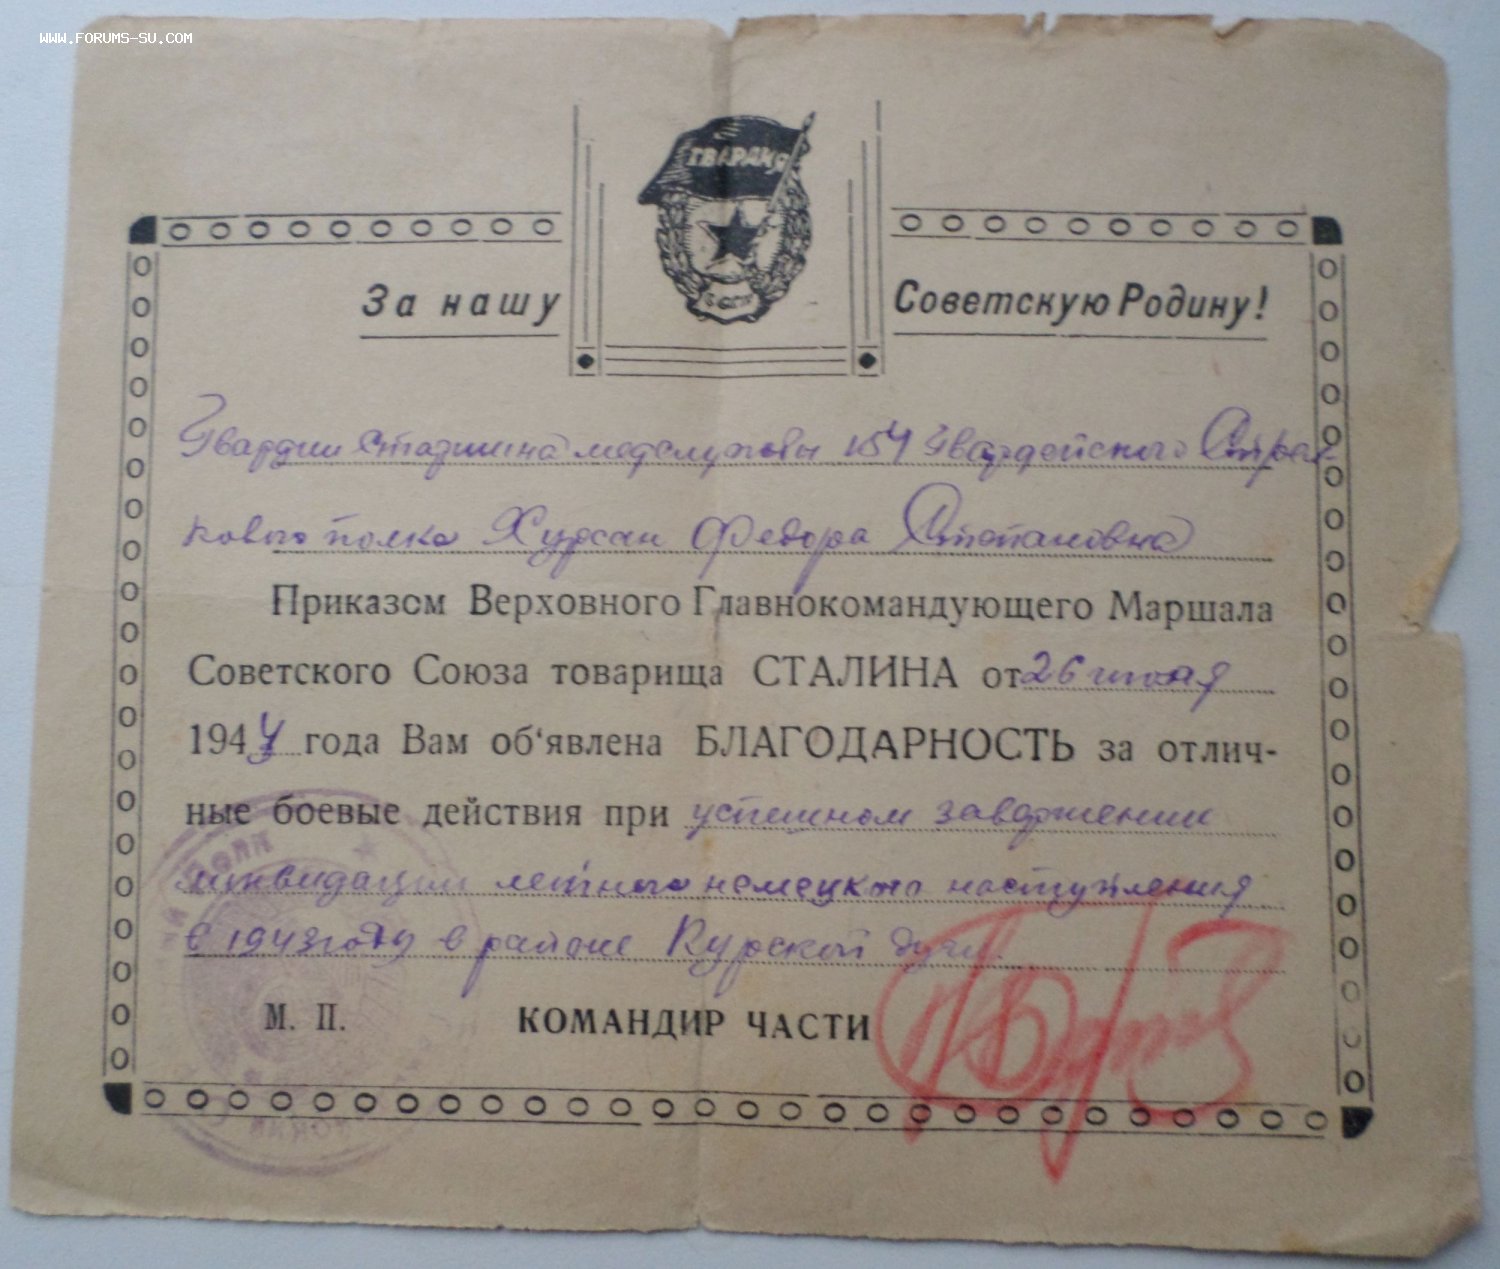 www.forums-su.com
ГВАРДИЯ
За нашу Советскую Родину!
Гвардии старшина медслужбы 154 Гвардейского Стрел-
кового полка Хурсан Федора Степановна
Приказом Верховного Главнокомандующего Маршала
Советского Союза товарища СТАЛИНА от 26 июля
1944 года Вам об‘явлена БЛАГОДАРНОСТЬ за отлич-
ные боевые действия при успешном завершении
ликвидации летнего немецкого наступления
в 1943 году в районе Курской дуги.
М. П. КОМАНДИР ЧАСТИ